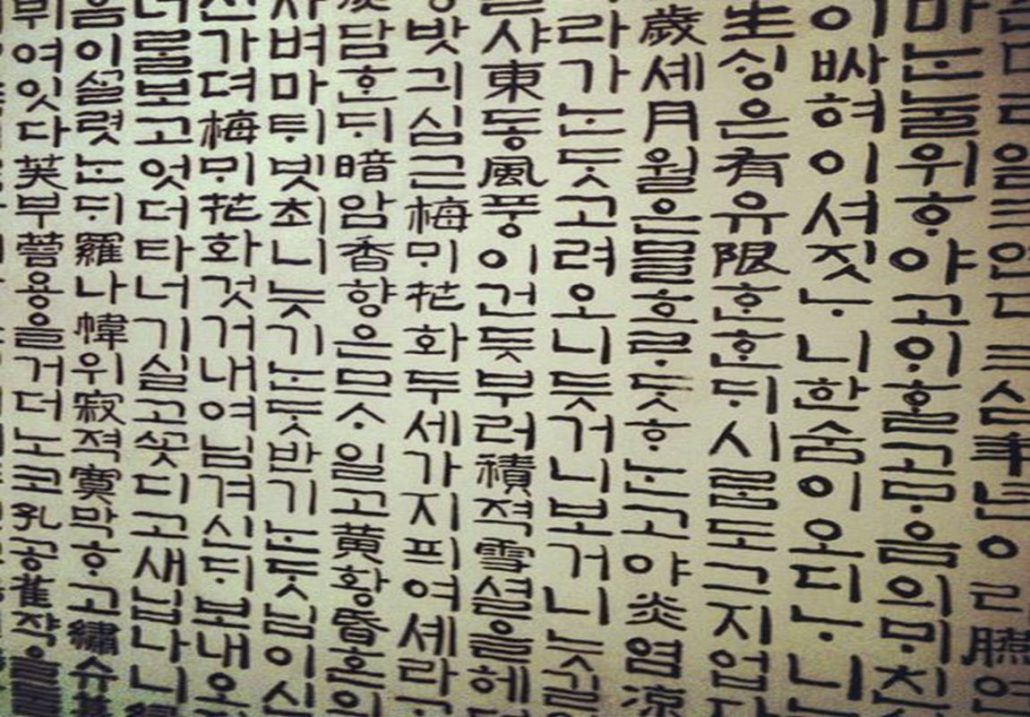 年년이
마ᄂᆞᆫ눌위ᄒᆞ야고이ᄒᆞᆯ고ᄆᆞ음의ᄆᆡ친
이싸혀이셔짓ᄂᆞ니한숨이오디ᄂᆞ니
生ᄉᆡᆼ은有유限ᄒᆞᆫᄒᆞᆫᄃᆡ시ᄅᆞᆷ도그지업다
歲셰月월은믈흐ᄅᆞᄃᆞᆺᄒᆞᄂᆞᆫ고야炎염凉
라가ᄂᆞᆫᄃᆞᆺ고려오니듯거니보거니늣길
샤東동風풍이건듯부러積젹雪셜을헤
밧긔심근梅ᄆᆡ花화두세가지픠여셰라
담ᄒᆞᆫᄃᆡ暗암香향은므ᄉᆞ일고黃황昏혼의
벼마ᄐᆡ빗최니늣기ᄂᆞᆫᄃᆞᆺ반기ᄂᆞᆫᄃᆞᆺ님이신
가뎌梅ᄆᆡ花화것거내여님겨신ᄃᆡ보내오
너ᄅᆞᆯ보고엇더타너기실고ᄭᅩᆺ디고새닙나니
음이ᄭᆞᆯ렷ᄂᆞᆫᄃᆡ羅나幃위寂적寞막ᄒᆞ고繡슈
뷔여잇다芙부蓉용을거더노코孔공雀작을